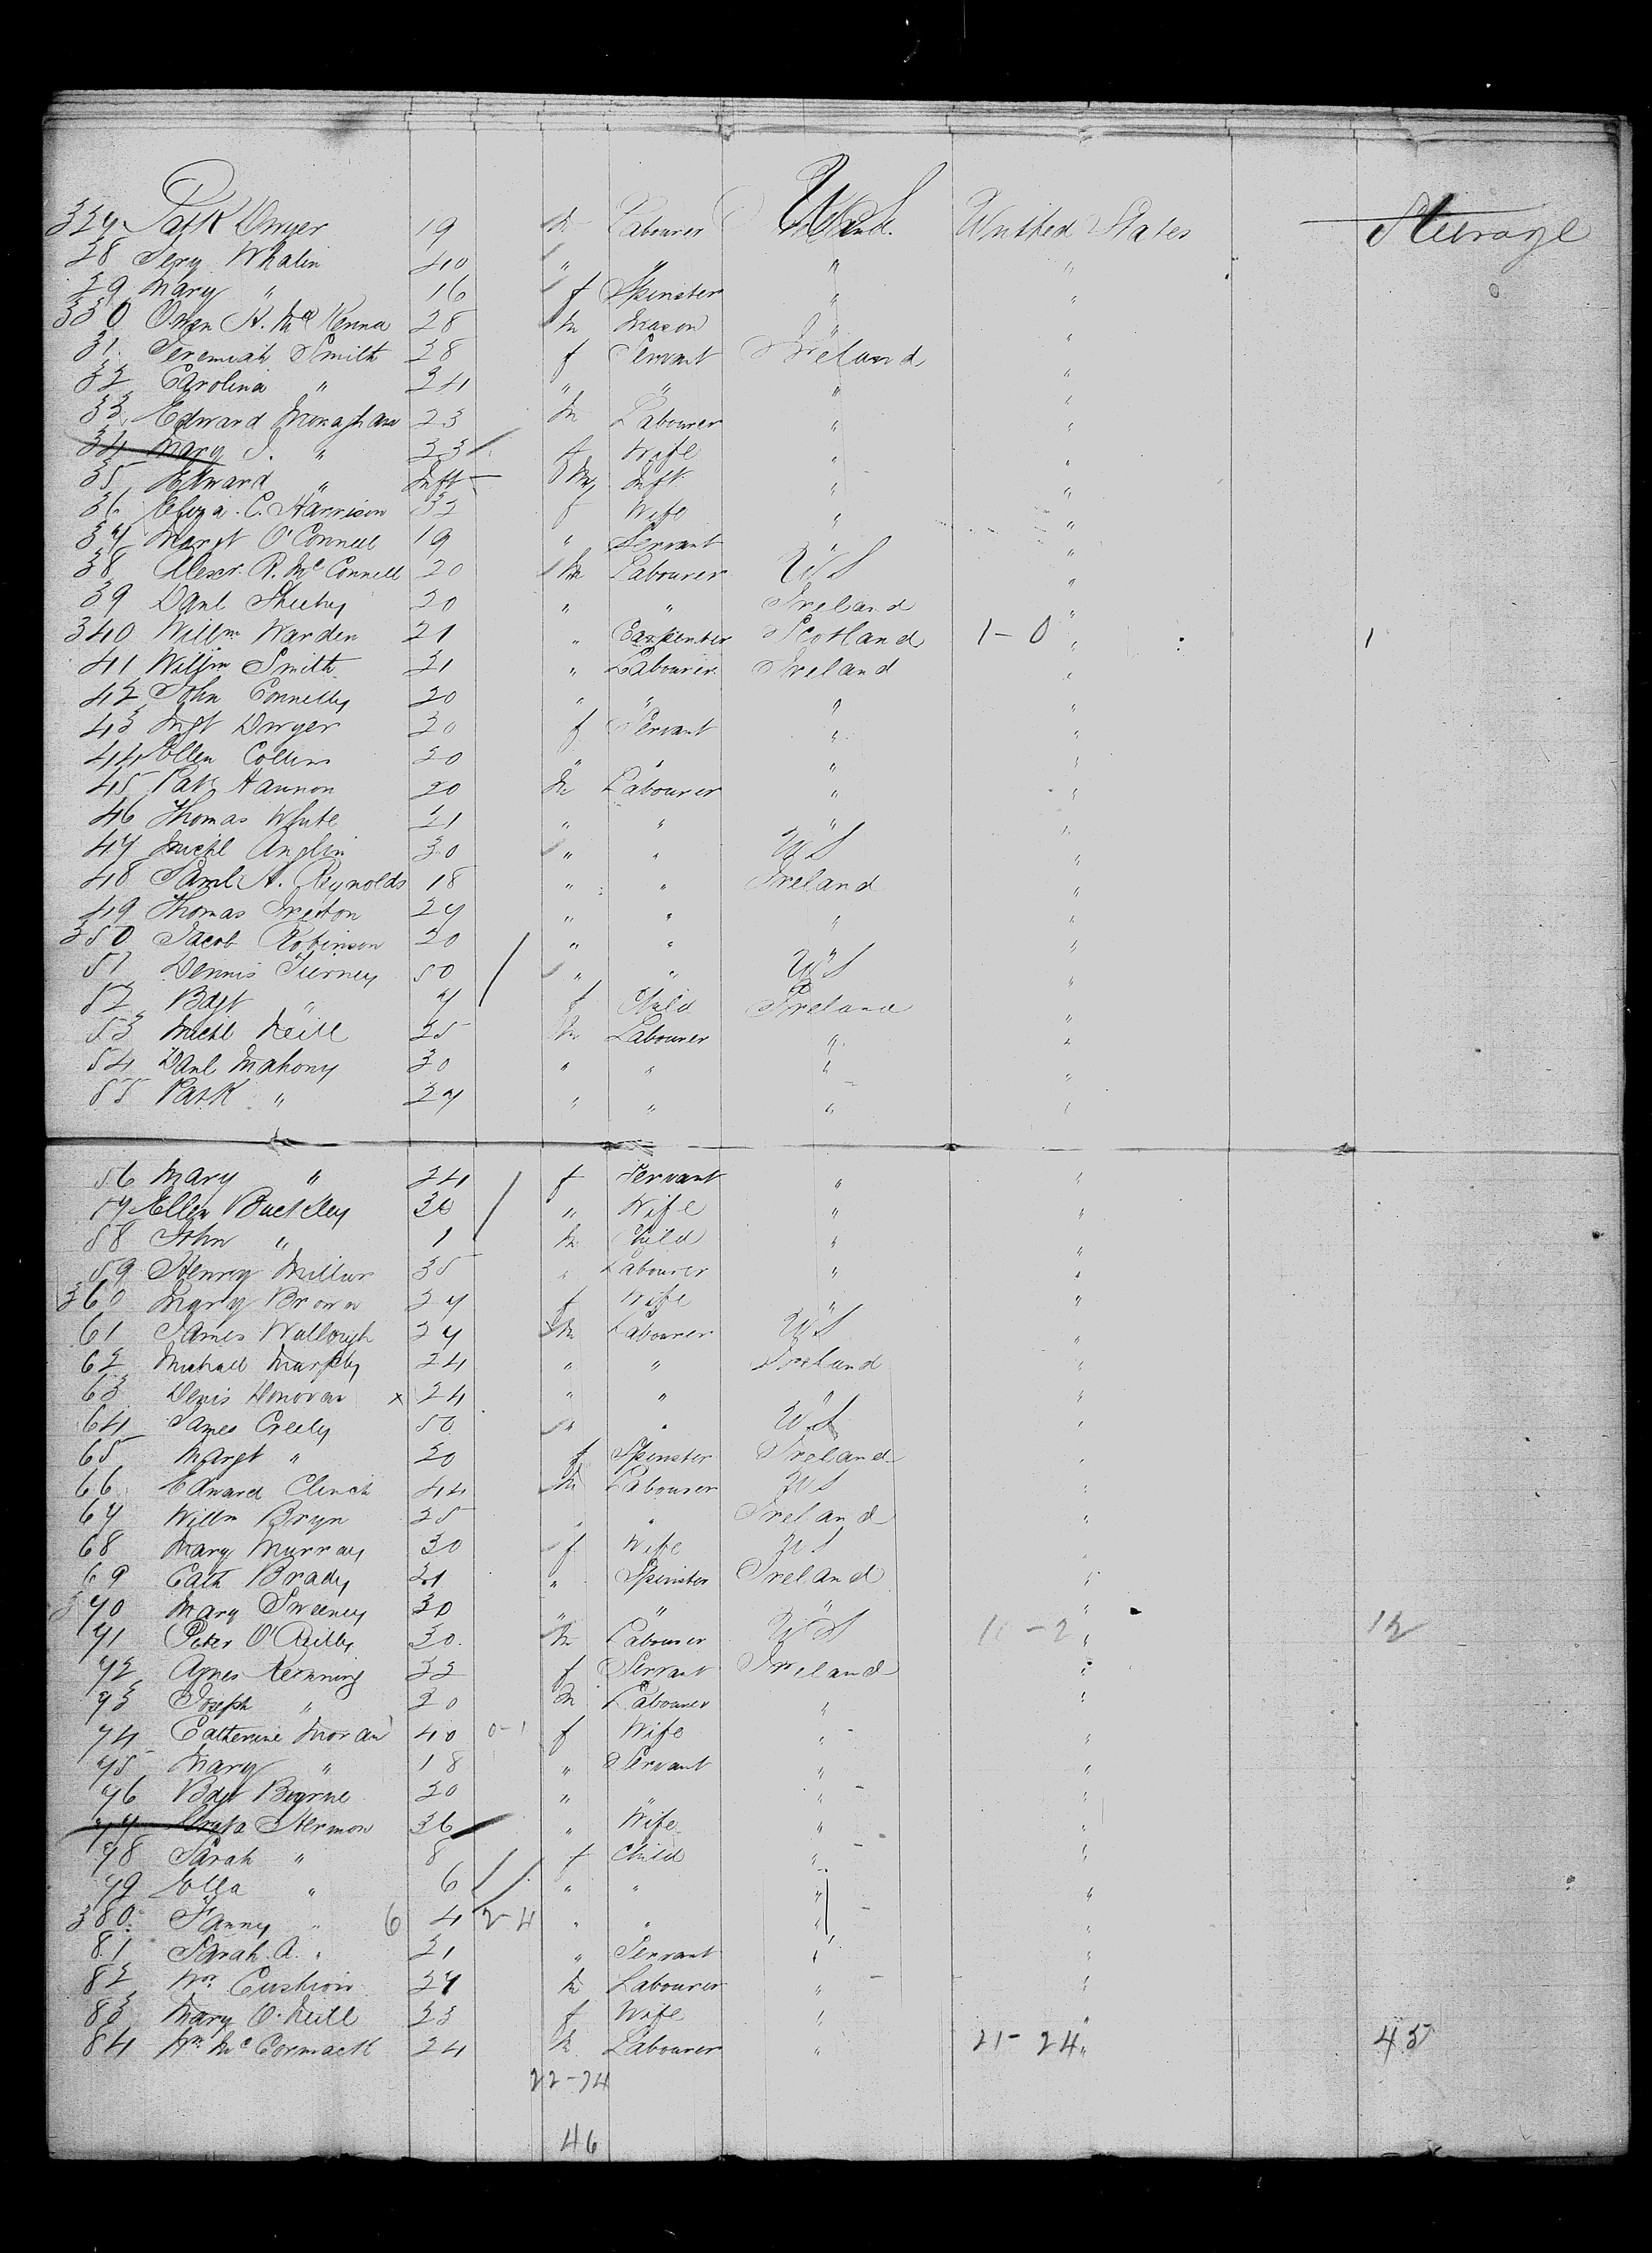 327 Patk Dwyer 19 m Labourer U.S. United States Steerage
28 Jery Whalin 40 " " " "
29 Mary " 16 f Spinster " "
330 Owen A. McKenna 28 m Mason " "
31 Jeremiah Smith 28 f Servant Ireland "
32 Carolina " 24 " " " "
33 Edward Monaghan 23 m Labourer " "
34 Mary J. " 23 f Wife " "
35 Edward " Inft m Inft " "
36 Eliza C. Harrison 32 f Wife " "
37 Margt O'Connell 19 " Servant " "
38 Alexr. R. McConnell 20 m Labourer US "
39 Danl Sheehy 20 " " Ireland "
340 Willm Warden 21 " Carpenter Scotland 1-0 " 1
41 Willm Smith 21 " Labourer Ireland "
42 John Connelly 20 " " " "
43 Mgt Dwyer 20 f Servant " "
44 Ellen Collins 20 " " " "
45 Patk Hannon 20 m Labourer " "
46 Thomas White 21 " " " "
47 Michl Anglin 30 " " US "
48 Saml A. Reynolds 18 " " Ireland "
49 Thomas Preston 27 " " " "
350 Jacob Robinson 20 " " " "
51 Dennis Tierney 50 " " US "
52 Bdgt " 7 f Child Ireland "
53 Michl Neill 25 m Labourer " "
54 Danl Mahony 30 " " " "
55 Patk " 27 " " " "
56 Mary " 24 f Servant " "
57 Ellen Buckley 30 " Wife " "
58 John " 1 m Child " "
59 Henry Millur 35 " Labourer " "
360 Mary Brown 27 f Wife " "
61 James Wallough 27 m Labourer US "
62 Michall Murphy 24 " " Ireland "
63 Denis Donovan x 24 " " " "
64 James Creely 50 " " US "
65 Margt " 20 f Spinster Ireland "
66 Edward Clinch 44 m Labourer US "
67 Willm Bryn 25 " " Ireland "
68 Mary Murray 30 f Wife US "
69 Cath Brady 21 " Spinster Ireland "
370 Mary Sweeney 30 " " " "
71 Peter O'Reilly 30 m Labourer US 10-2 " 12
72 Agnes Kernning 22 f Servant Ireland "
73 Joseph " 20 m Labourer " "
74 Catherine Moran 40 0-1 f Wife " "
75 Mary " 18 " Servant " "
76 Bdgt Byrne 20 " " " "
77 Hermon 36 " Wife " "
78 Sarah " 8 f Child " "
79 Ella " 6 " " " "
380 Fanny " 6 4 2-4 " " " "
81 Sarah A. " 21 " Servant " "
82 Wm Cushion 27 m Labourer " "
83 Mary O'Neill 23 f Wife " "
84 Wm McCormack 24 m Labourer " 21-24 " 45
22-24
46